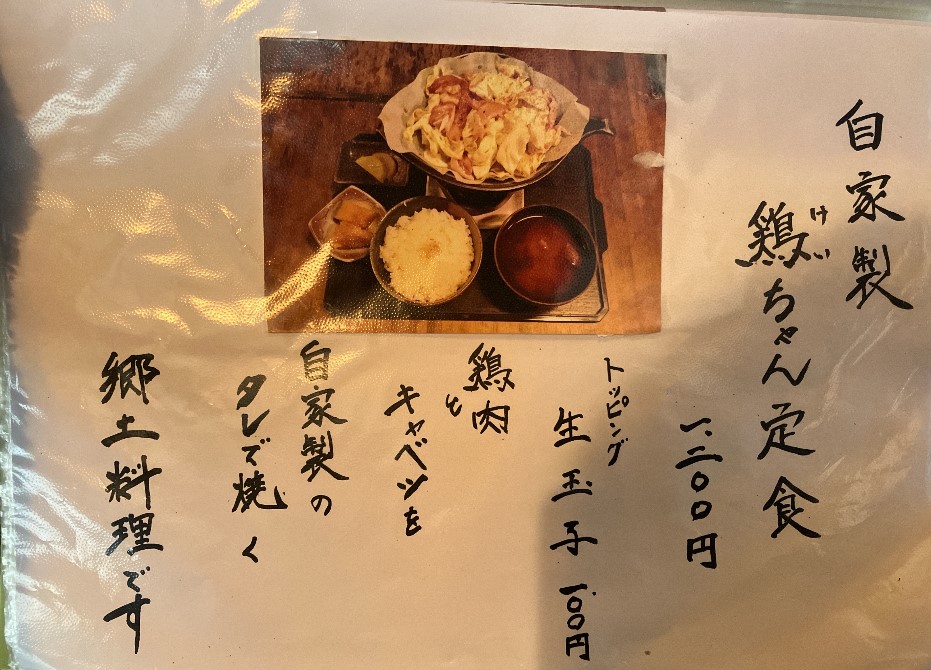 自家製
鶏ちゃん定食
けい
一、三〇〇円
トッピング
生玉子 一〇〇円
鶏肉と
キャベツを
自家製の
タレで焼く
郷土料理です